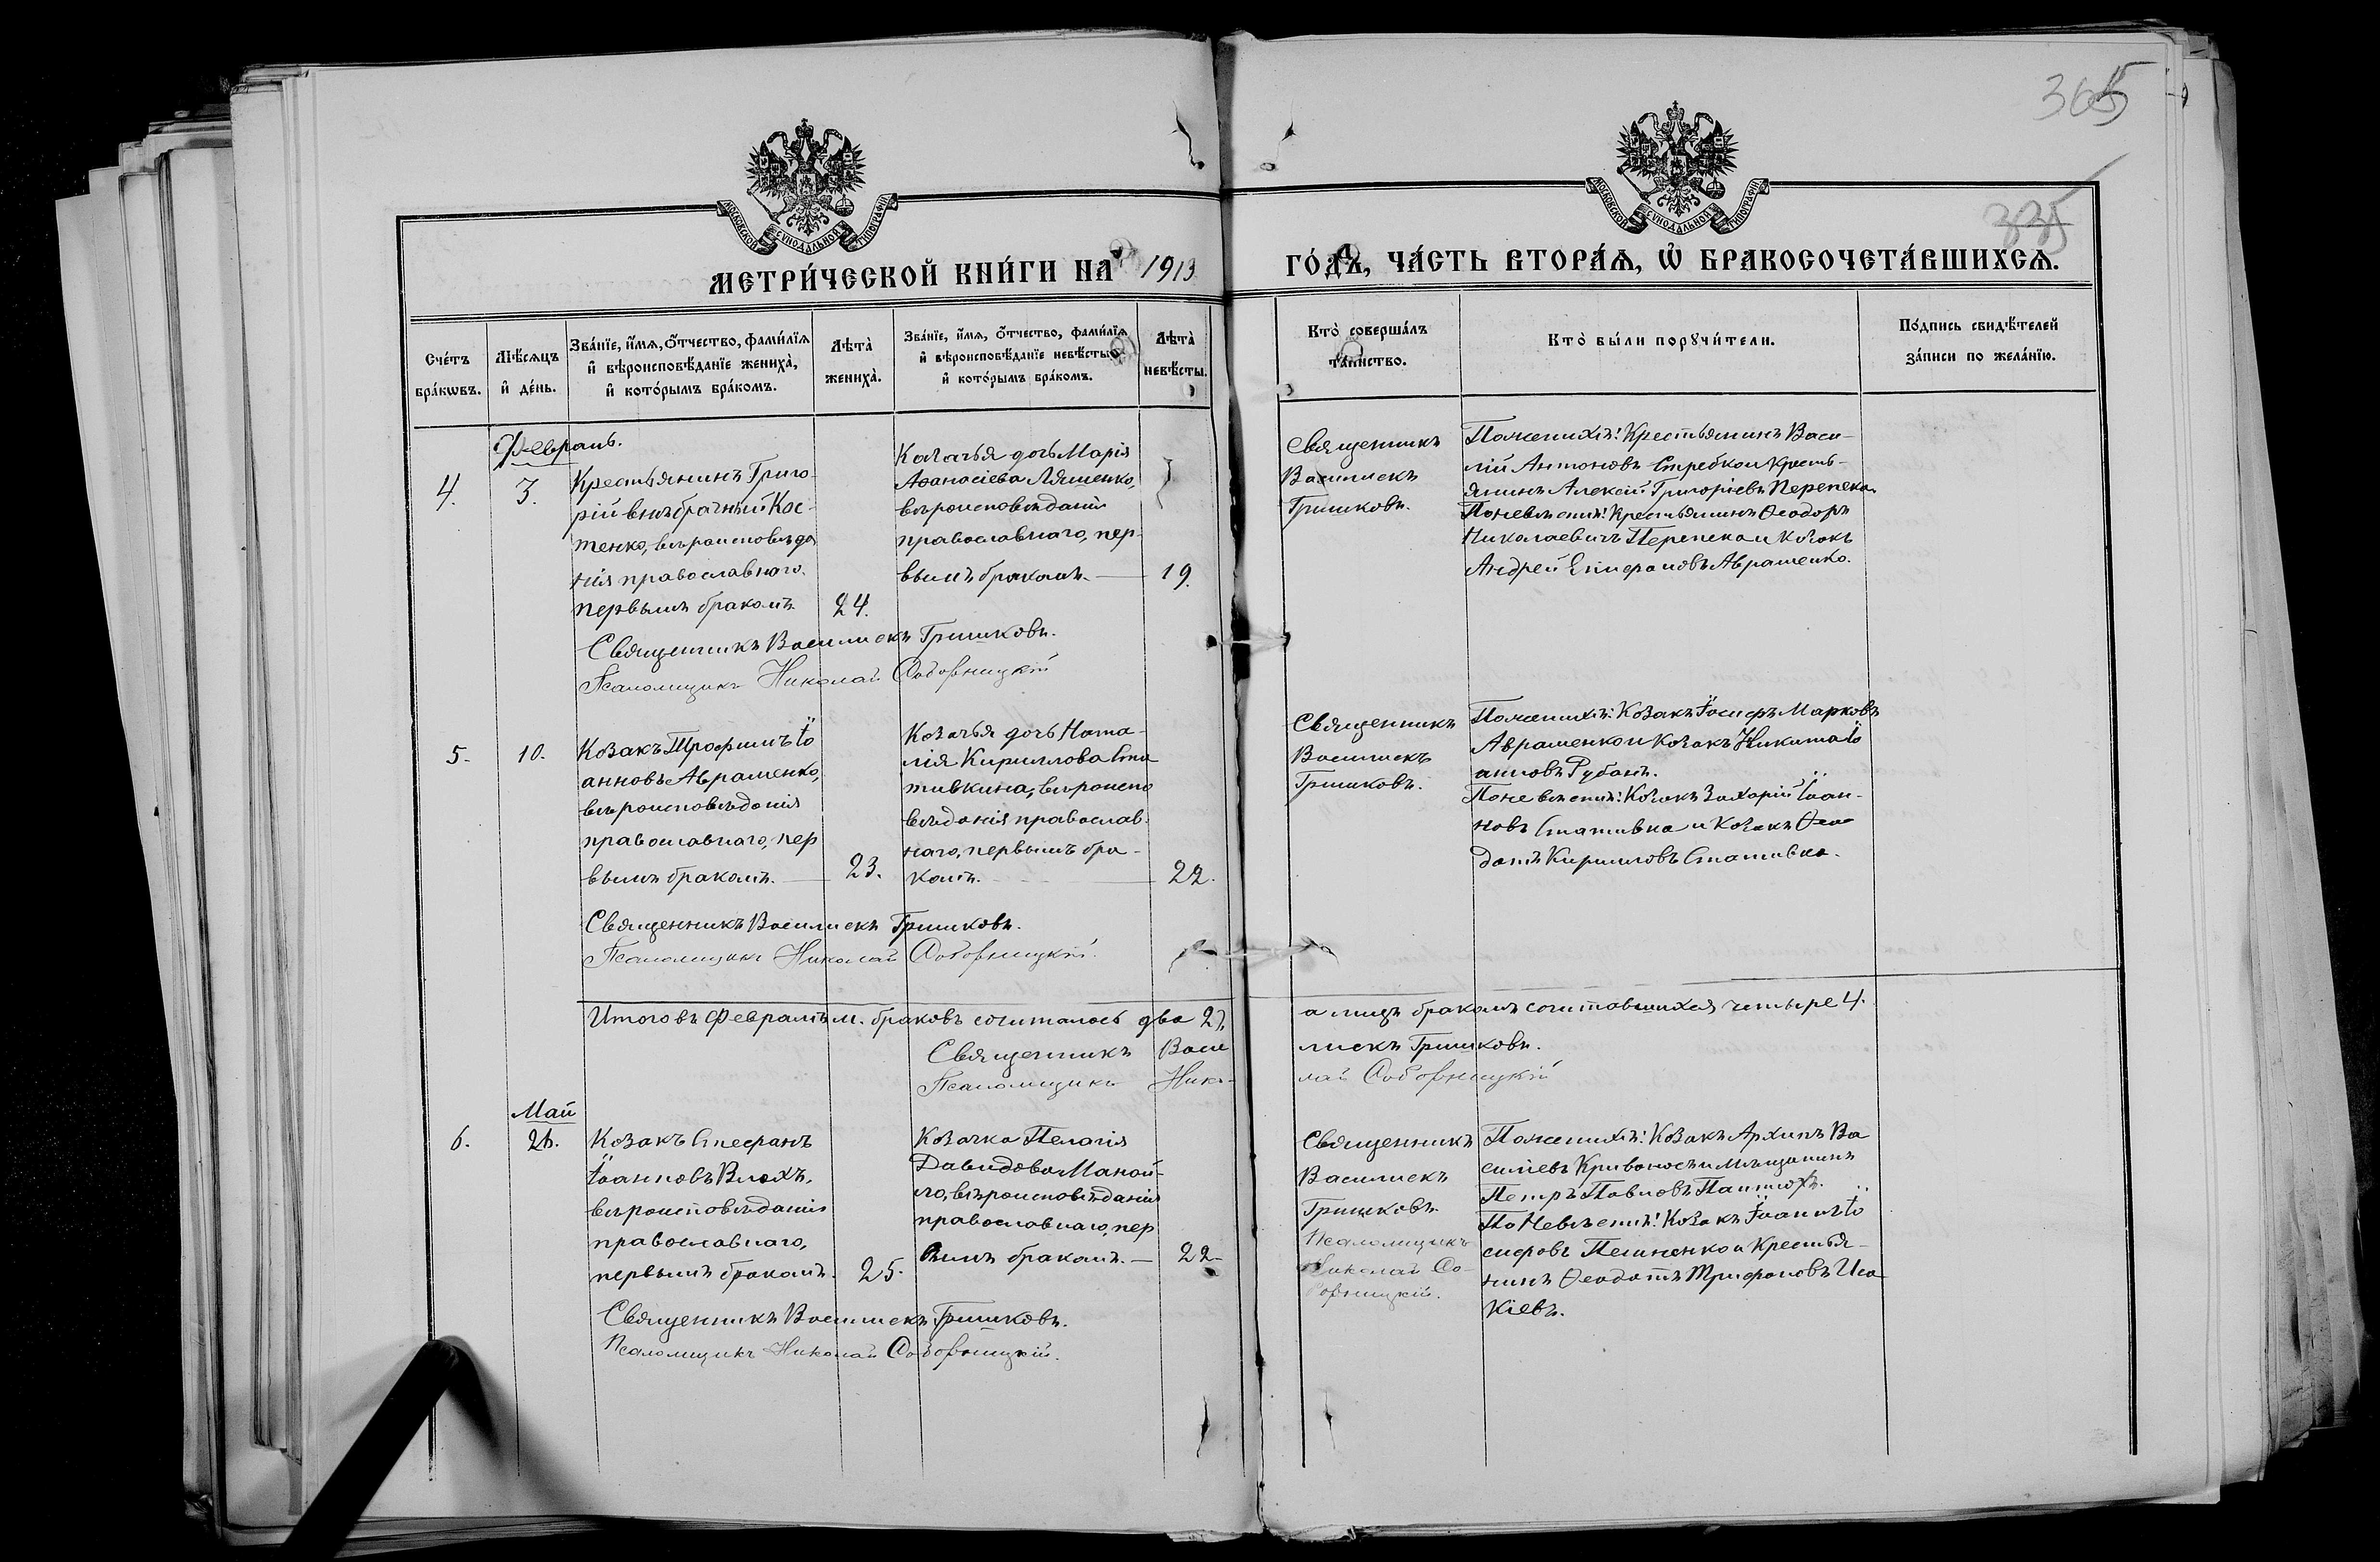 365
335
МОСКОВСКОЙ СѴНОДАЛЬНОЙ ТИПОГРАФІИ
МОСКОВСКОЙ СѴНОДАЛЬНОЙ ТИПОГРАФІИ
МЕТРИ́ЧЕСКОЙ КНИ́ГИ НА 1913 ГО́ДЪ, ЧА́СТЬ ВТОРА́Ѧ, Ѡ҆ БРАКОСОЧЕТА́ВШИХСѦ.
Сче́тъ бра́кѡвъ.
Мѣ́сѧцъ и҆ де́нь.
Зва́нїе, и҆́мѧ, ѻ҆́тчество, фами́лїѧ и҆ вѣроисповѣ́данїе жениха̀, и҆ кото́рымъ бра́комъ.
Лѣта̀ жениха̀.
Зва́нїе, и҆́мѧ, ѻ҆́тчество, фами́лїѧ и҆ вѣроисповѣ́данїе невѣ́сты и҆ кото́рымъ бра́комъ.
Лѣта̀ невѣ́сты.
Кто̀ соверша́лъ та́инство.
Кто̀ бы́ли порꙋчи́тели.
По́дпись свидѣ́телей за́писи по жела́нїю.
Февраль.
4.
3.
Крестьянинъ Григо-
рій внѣбрачный Кос-
тенко, вѣроисповѣда
нія православнаго,
первымъ бракомъ.
24.
Козачья дочь Марія
Аѳанасіева Ляшенко,
вѣроисповѣданія
православнаго, пер-
вымъ бракомъ.
19.
Священникъ
Василискъ
Гришковъ.
По женихѣ: Крестьянинъ Васи-
лій Антоновъ Стребко и Кресть-
янинъ Алексій Григоріевъ Перепека.
По невѣстѣ: Крестьянинъ Ѳеодоръ
Николаевичъ Перепека и Козакъ
Андрей Епифановъ Авраменко.
Священникъ Василискъ Гришковъ.
Псаломщикъ Николай
5.
10.
Козакъ Трофимъ Іо
анновъ Авраменко,
вѣроисповѣданія
православнаго, пер
вымъ бракомъ.
23.
Козачья дочь Ната-
лія Кириллова Ста
тивкина, вѣроиспо
вѣданія православ-
наго, первымъ бра-
комъ.
22.
Священникъ
Василискъ
Гришковъ.
По женихѣ: Козакъ Іосифъ Марковъ
Авраменко и Козакъ Никита Іо
анновъ Рубанъ.
По невѣстѣ: Козакъ Захарій Іоан-
новъ Стативка и Козакъ Ѳео
дотъ Кирилловъ Стативка.
Священникъ Василискъ Гришковъ.
Псаломщикъ Николай
Итого въ Февралѣ м. браковъ сочиталось два 2, а лицъ бракомъ сочетавшихся четыре 4.
Священникъ Василискъ Гришковъ.
Псаломщикъ Николай
Май
6.
26.
Козакъ Стефанъ
Іоанновъ Влохъ,
вѣроисповѣданія
православнаго,
первымъ бракомъ.
25.
Козачка Пелагія
Давидова Маной-
ло, вѣроисповѣданія
православнаго, пер
вымъ бракомъ.
22
Священникъ
Василискъ
Гришковъ.
Псаломщикъ
Николай
По женихѣ: Козакъ Архипъ Ва
силіевъ Кривоносъ и мѣщанинъ
Петръ Павловъ Пантюхъ.
По Невѣстѣ: Козакъ Іоаннъ Іо
сифовъ и Крестья-
нинъ Ѳеодотъ Трифоновъ Иса
кіевъ.
Священникъ Василискъ Гришковъ.
Псаломщикъ Николай